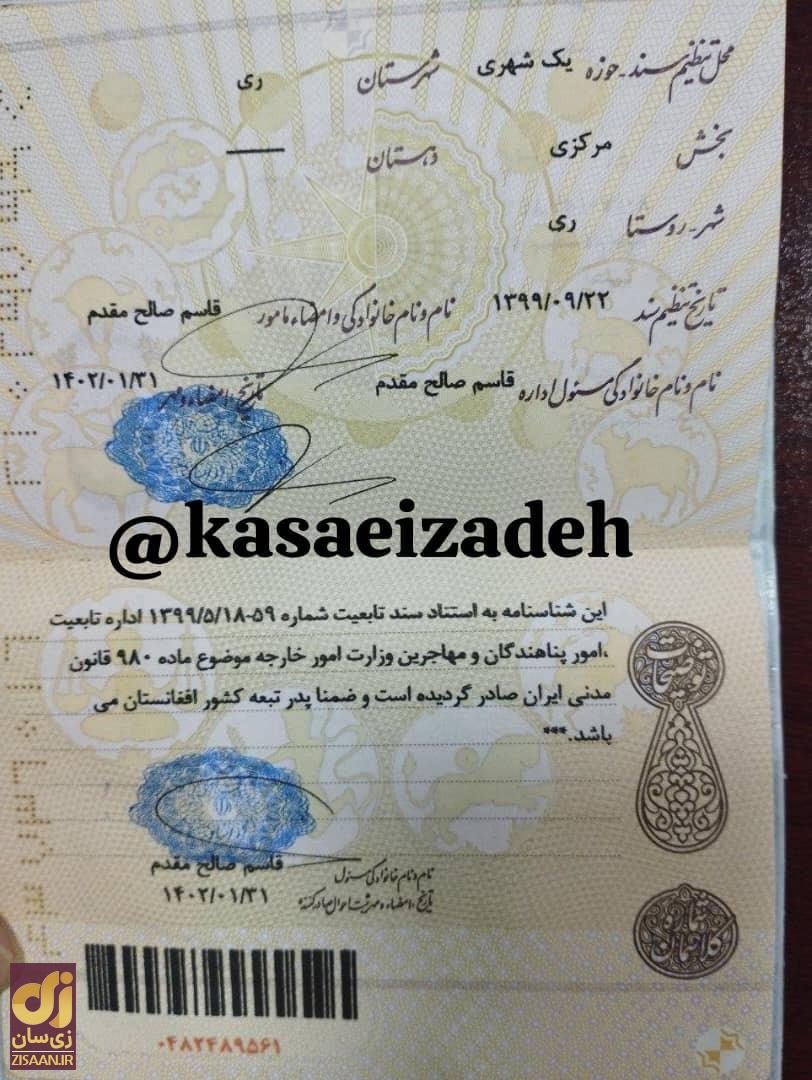 محل تنظیم سند - حوزه یک شهری شهرستان ری
بخش مرکزی دهستان ——
شهر - روستا ری
تاریخ تنظیم سند ۱۳۹۹/۰۹/۲۲ نام و نام خانوادگی و امضاء مامور قاسم صالح مقدم
نام و نام خانوادگی مسئول اداره قاسم صالح مقدم تاریخ، امضاء و مهر ۱۴۰۲/۰۱/۳۱
@kasaeizadeh
توضیحات
این شناسنامه به استناد سند تابعیت شماره ۵۹-۱۳۹۹/۵/۱۸ اداره تابعیت
،امور پناهندگان و مهاجرین وزارت امور خارجه موضوع ماده ۹۸۰ قانون
مدنی ایران صادر گردیده است و ضمنا پدر تبعه کشور افغانستان می
باشد.***
نام و نام خانوادگی مسئول قاسم صالح مقدم
تاریخ، امضاء و مهر ثبت احوال صادر کننده ۱۴۰۲/۰۱/۳۱
۰۴۸۲۴۸۹۵۶۱
زی‌سان
ZISAAN.IR